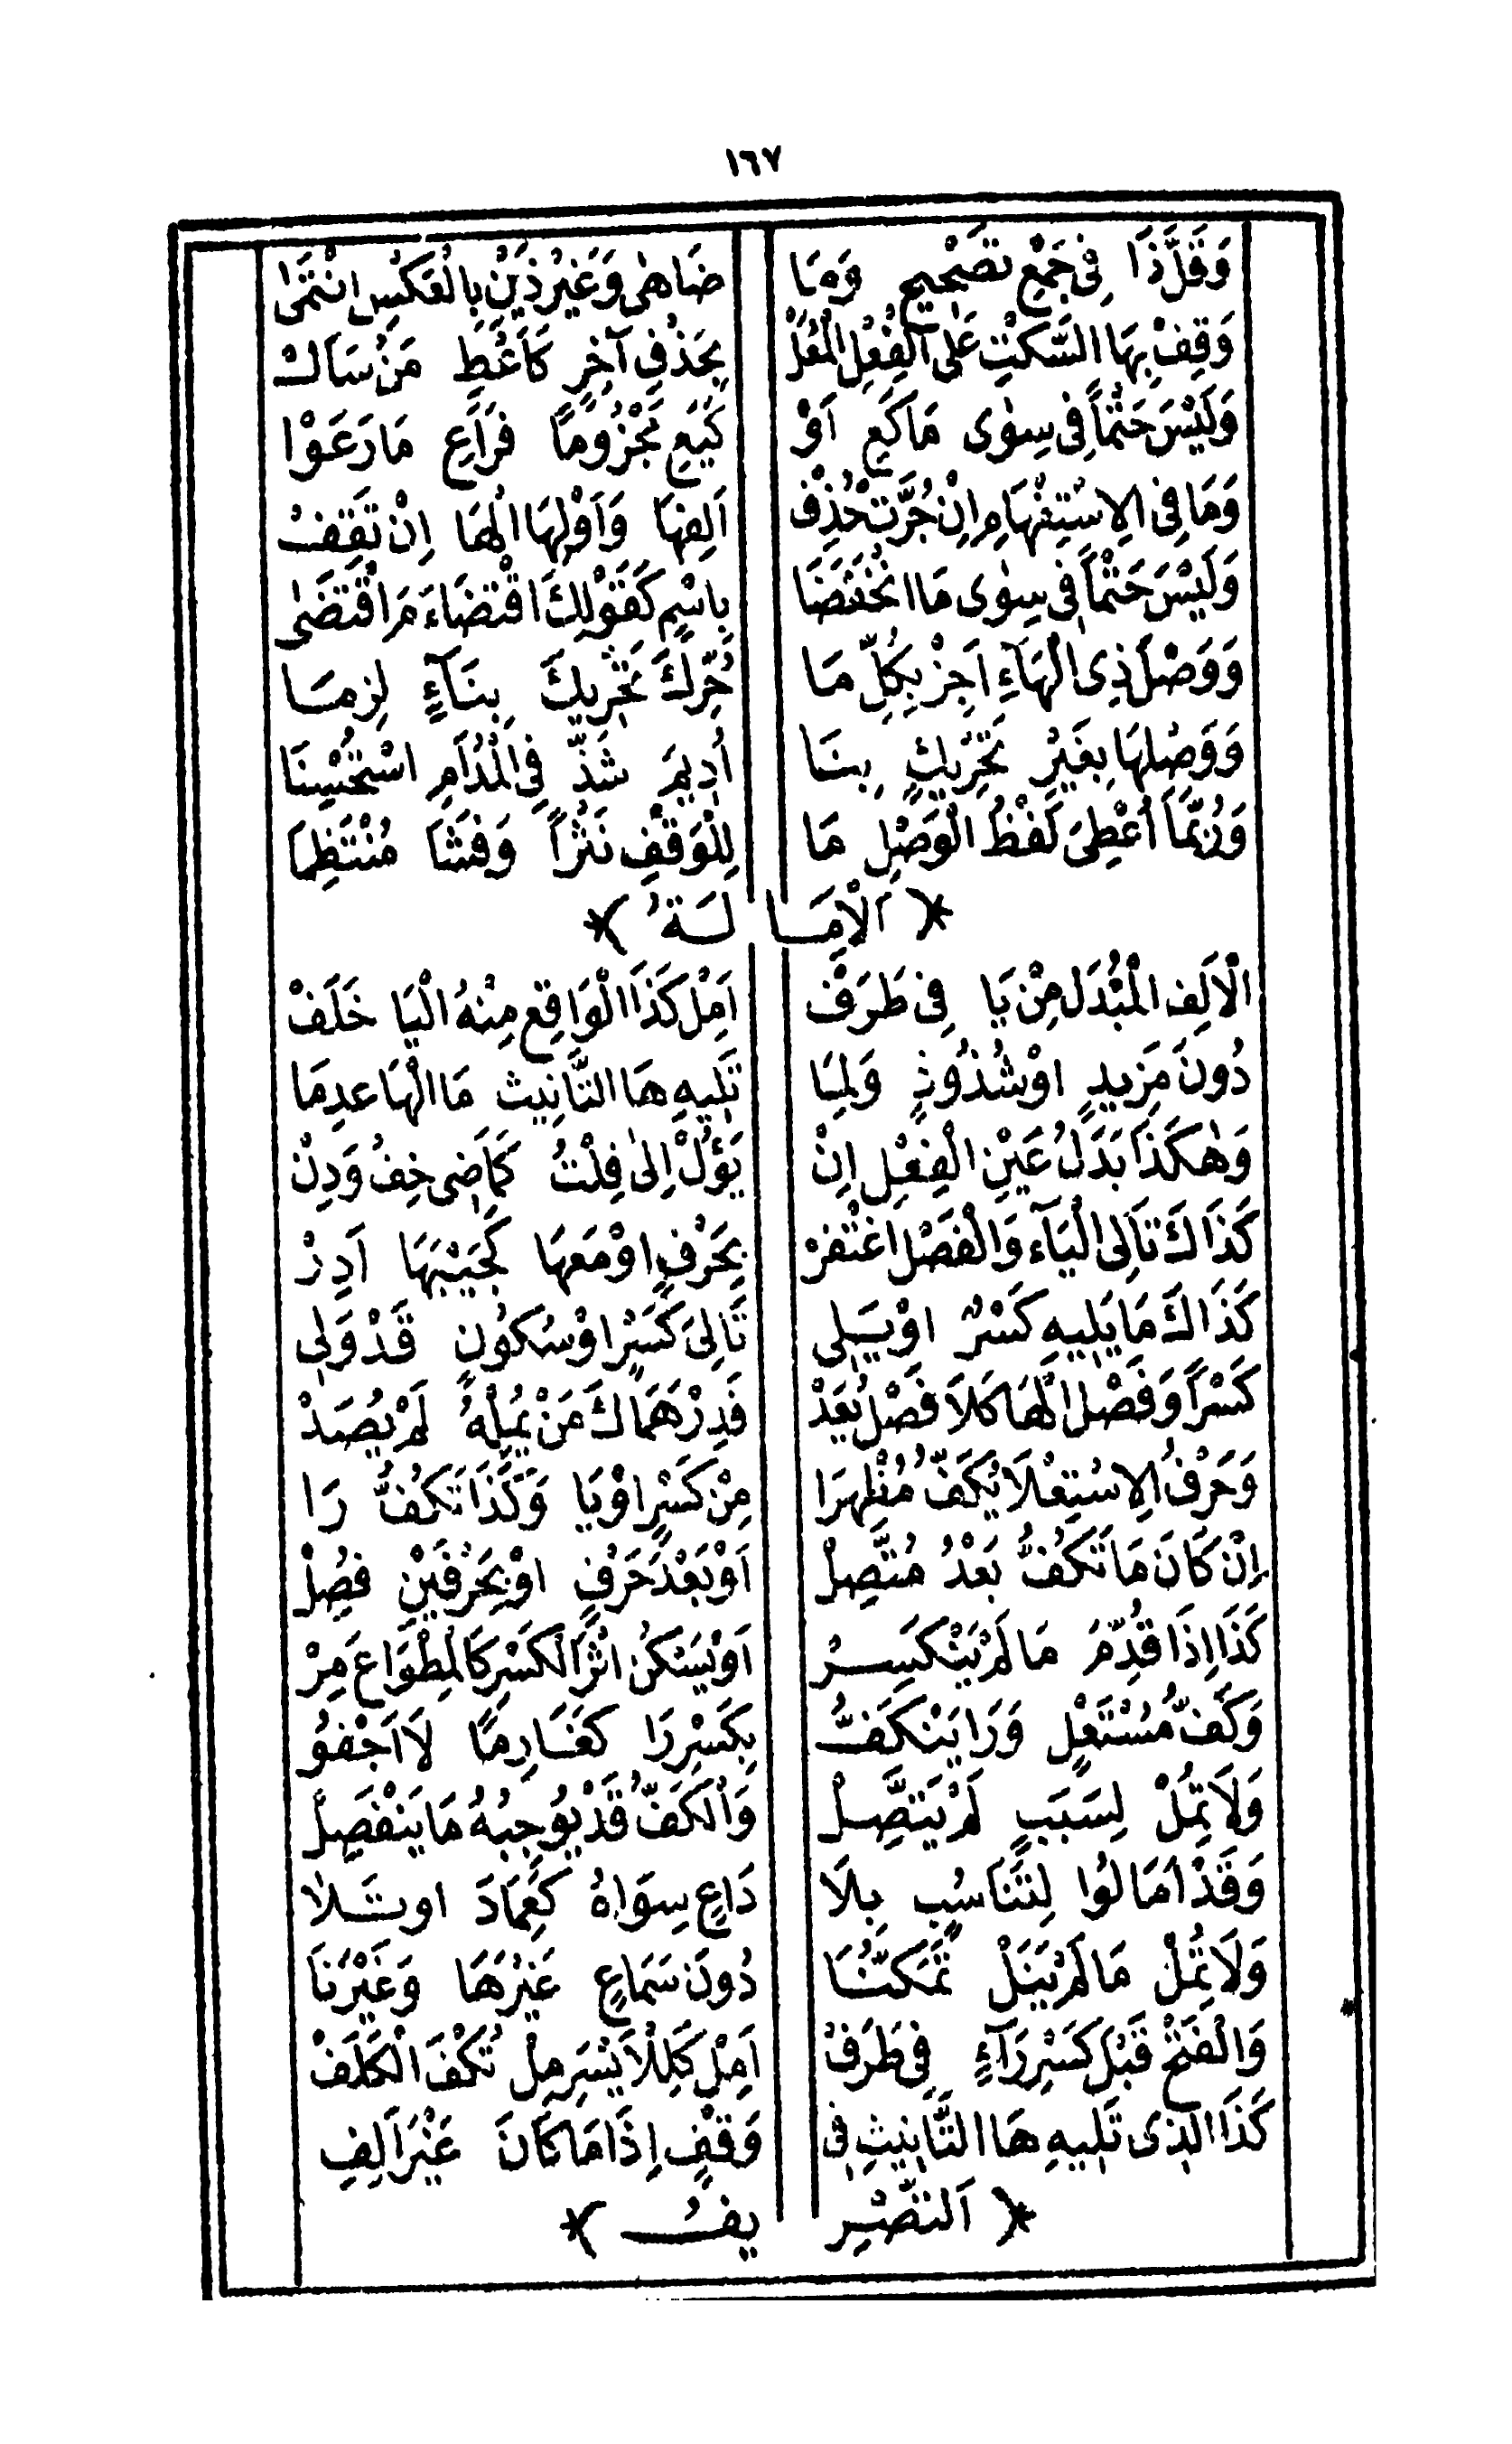 ١٦٧
وَقَلَّ ذَا فِى جَمْعِ تَصْحِيحٍ وَمَا ضَاهٰى وَغَيْرُ ذَيْنِ بِالْعَكْسِ انْتَمٰى
وَقِفْ بِهَا السَّكْتِ عَلَى الْفِعْلِ الْمُعَلْ بِحَذْفِ آخِرٍ كَأَعْطِ مَنْ سَأَلْ
وَلَيْسَ حَتْماً فِى سِوٰى مَا كَعِ اَوْ كَيَعِ مَجْزُومًا فَرَاعِ مَا رَعَوْا
وَمَا فِى الِاسْتِفْهَامِ اِنْ جُرَّتْ حُذِفْ اَلِفُهَا وَاَوْلِهَا الْهَا اِنْ تَقِفْ
وَلَيْسَ حَتْماً فِى سِوٰى مَا انْخَفَضَا بِاسْمٍ كَقَوْلِكَ اقْتِضَاءَ مَ اقْتَضٰى
وَوَصْلَ ذِى الْهَاءِ اَجِزْ بِكُلِّ مَا حُرِّكَ تَحْرِيكَ بِنَآءٍ لَزِمَا
وَوَصْلُهَا بِغَيْرِ تَحْرِيكِ بِنَا اُدِيمَ شَذَّ فِى الْمُدَامِ اسْتُحْسِنَا
وَرُبَّمَا اُعْطِىَ لَفْظُ الْوَصْلِ مَا لِلْوَقْفِ نَثْراً وَفَشَا مُنْتَظِمَا
﴿ اَلْاِمَالَةُ ﴾
الْاَلِفَ الْمُبْدَلَ مِنْ يَا فِى طَرَفْ اَمِلْ كَذَا الْوَاقِعُ مِنْهُ الْيَا خَلَفْ
دُونَ مَزِيدٍ اوْ شُذُوذٍ وَلِمَا تَلِيهِ هَا التَّانِيثِ مَا الْهَا عَدِمَا
وَهٰكَذَا بَدَلُ عَيْنِ الْفِعْلِ اِنْ يَؤُلْ اِلٰى فِلْتُ كَمَاضِى خِفْ وَدِنْ
كَذَاكَ تَالِى الْيَآءِ وَالْفَصْلُ اغْتُفِرْ بِحَرْفٍ اوْ مَعْهَا كَجَيْبَهَا اَدِرْ
كَذَاكَ مَا يَلِيهِ كَسْرٌ اوْ يَلِى تَالِىَ كَسْرٍ اوْ سُكُونٍ قَدْ وَلِى
كَسْراً وَفَصْلُ الْهَا كَلَا فَصْلٍ يُعَدْ فَدِرْهَمَاكَ مَنْ يُمِلْهُ لَمْ يُصَدْ
وَحَرْفُ الِاسْتِعْلَا يَكُفُّ مُظْهَرَا مِنْ كَسْرٍ اوْ يَا وَكَذَا تَكُفُّ رَا
اِنْ كَانَ مَا تَكُفُّ بَعْدُ مُتَّصِلْ اَوْ بَعْدَ حَرْفٍ اوْ بِحَرْفَيْنِ فُصِلْ
كَذَا اِذَا قُدِّمَ مَا لَمْ يَنْكَسِرْ اَوْ يَسْكُنْ اثْرَ الْكَسْرِ كَالْمِطْوَاعَ مِرْ
وَكَفُّ مُسْتَعْلٍ وَرَا يَنْكَفُّ بِكَسْرِ رَا كَغَارِمًا لَا اَجْفُو
وَلَا تُمِلْ لِسَبَبٍ لَمْ يَتَّصِلْ وَالْكَفُّ قَدْ يُوجِبُهُ مَا يَنْفَصِلْ
وَقَدْ اَمَالُوا لِتَنَاسُبٍ بِلَا دَاعٍ سِوَاهُ كَعِمَادَ اوتَلَا
وَلَا تُمِلْ مَا لَمْ يَنَلْ تَمَكُّنَا دُونَ سَمَاعٍ غَيْرَهَا وَغَيْرَنَا
وَالْفَتْحَ قَبْلَ كَسْرِ رَآءٍ فِى طَرَفْ اَمِلْ كَلِلْاَيْسَرِ مِلْ تُكْفَ الْكُلَفْ
كَذَا الذِى تَلِيهِ هَا التَّانِيثِ فِى وَقْفٍ اِذَا مَا كَانَ غَيْرَ اَلِفِ
﴿ اَلتَّصْرِيفُ ﴾